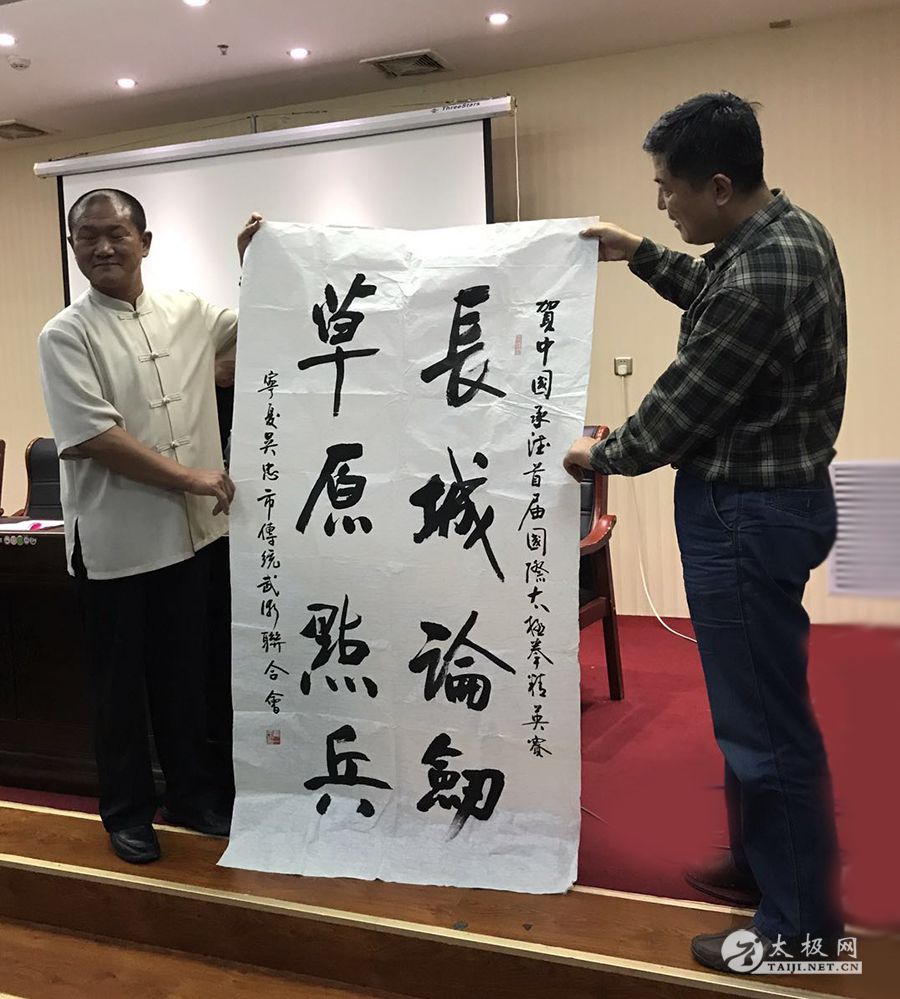 ThreeStars
賀中國承德首届國際太极拳精英賽
長城論劒
草原點兵
寧夏吴忠市傳統武術聯合會
太极网
TAIJI.NET.CN